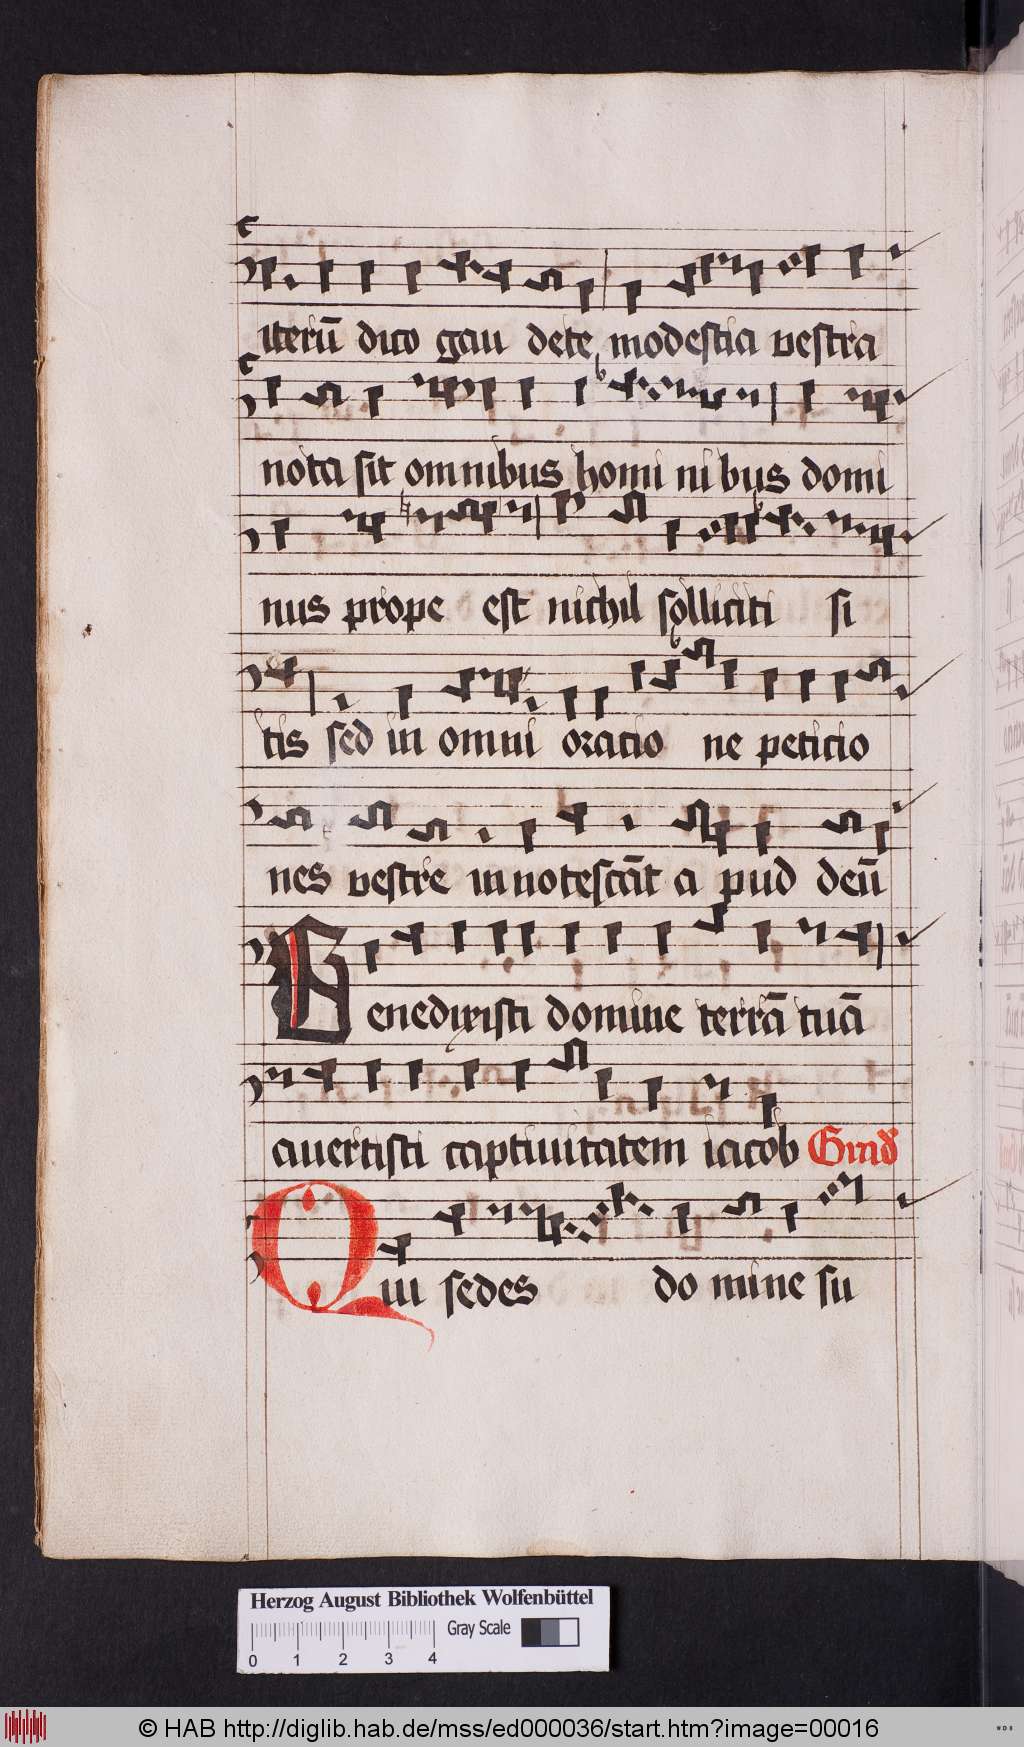 iterū dico gau dete modestia vestra
nota sit omnibus homi ni bus domi
nus prope est nichil solliciti si
tis sed in omni oratio ne peticio
nes vestre innotescāt a pud deū
Benedixisti domine terrā tuā
avertisti captivitatem iacob Grad
Qui sedes do mine su
Herzog August Bibliothek Wolfenbüttel
Gray Scale
0 1 2 3 4
© HAB http://diglib.hab.de/mss/ed000036/start.htm?image=00016